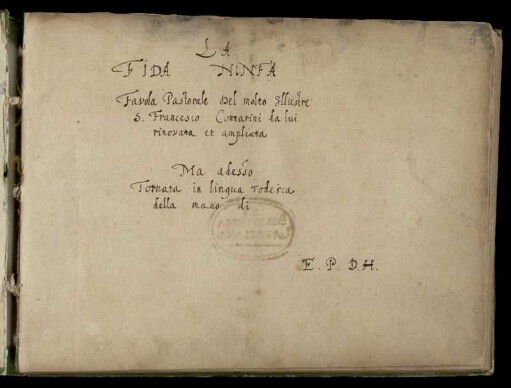 LA
FIDA NINFA
Favola Pastorale del molto Illustre
S. Francesco Contarini da lui
rinovata et ampliata
Ma adesso
Tornata in lingua Todesca
della mano di
E. P. D. H.